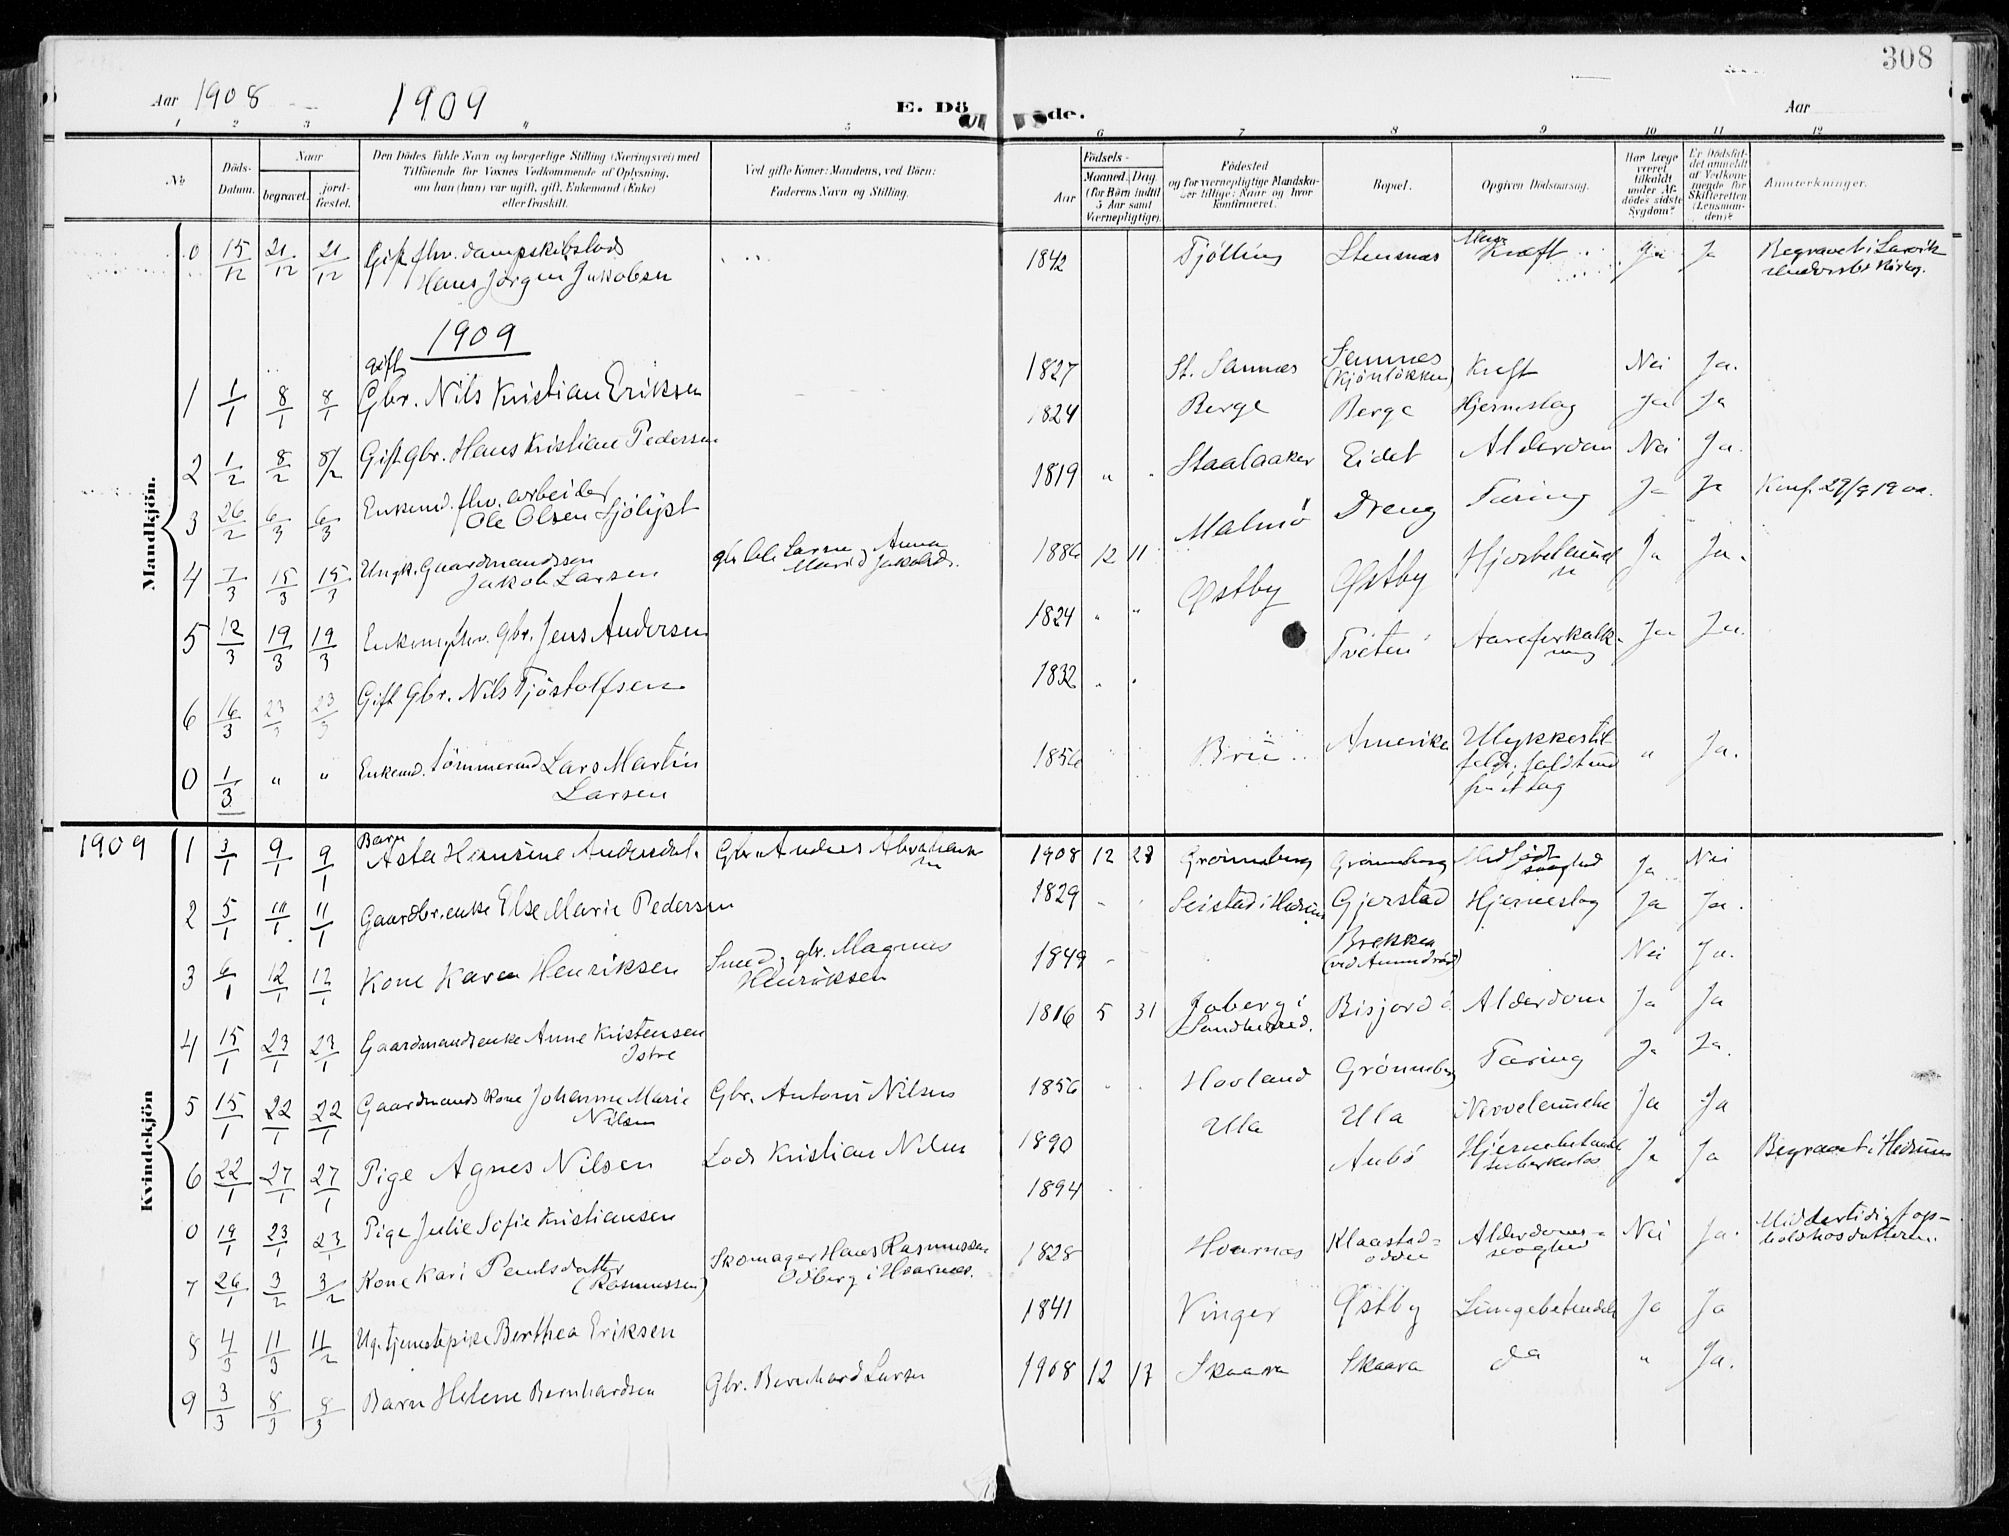 308
Aar 1908 1909 E. Dö de. Aar
1 2 3 4 5 6 7 8 9 10 11 12
No
Döds-
Datum.
Naar
begravet.
jord-
fæstet.
Den Dödes fulde Navn og borgerlige Stilling (Næringsvei) med
Tilföiende for Voxnes Vedkommende af Oplysning,
om han (hun) var ugift, gift, Enkemand (Enke)
eller fraskilt.
Ved gifte Koner: Mandens, ved Börn:
Faderens Navn og Stilling.
Födsels-
Aar
Maaned. Dag.
(for Börn indtil
5 Aar samt
Værnepligtige).
Födested
og for værnepligtige Mandska-
ber tillige: Naar og hvor
konfirmeret.
Bopæl.
Opgiven Dödsaarsag.
Har Læge
været
tilkaldt
under Af-
dödes sidste
Sygdom?
Er Dödsfal-
det anmeldt
af Vedkom-
mende for
Skifteretten
(Lensman-
den)?
Anmerkninger.
Mandkjön.
0 15/12 21/12 21/12 Gift fhv. dampskibslods
Hans Jørgen Jakobsen
1842 Tjølling Stensnæs Mave
Kræft Ja Ja Begravet i Larvik
1909
gift
1 1/1 8/1 8/1 Gbr. Nils Kristian Eriksen
1827 St. Sannæs Sannæs
(Kjönløkken) Kræft Nei Ja.
2 1/2 8/2 8/2 Gift gbr. Hans Kristian Pedersen
1824 Berge Berge Hjerneslag Ja Ja
3 26/2 6/3 6/3 Enkemd. fhv. arbeider
Ole Olsen Sjölyst
1819 " " Staalaaker Eidet Alderdom Nei Ja.
4 7/3 15/3 15/3 Ungk. Gaardmandssøn
Jakob Larsen
gbr. Ole Larsen og Anna
Marie Jakobsd.
1886 12 11 Malmø Dreng Tæring Ja Ja Konf. 29/9 1900.
5 12/3 19/3 19/3 Enkem. fhv. Gbr. Jens Andersen
1824 " " Østby Østby Ja Ja.
6 16/3 23/3 23/3 Gift Gbr. Nils Tjøstolfsen
1832 " " Tveten Aareforkalk-
ning Ja Ja.
0 1/3 " " Enkemd. tømmermd Lars Martin
Larsen
1856 Bru Amerika Ulykkestil-
fælde, faldt ned
fra et tag " Ja.
Kvindekjön
1909
Barn
1 3/1 9/1 9/1 Asta Henrine Andersdt. Gbr. Anders Abrahamsen
1908 12 28 Grønneberg Grønneberg Medfødt
svaghed Ja Nei
2 5/1 11/1 11/1 Gaardbr.enke Else Marie Pedersen
1829 " " Seistad i Hedrum Gjerstad Hjerneslag Ja Ja.
3 6/1 12/1 12/1 Kone Karen Henriksen Smed og gbr. Magnus
Henriksen
1849 " Brekken
(ved Amundrød) Nei Ja.
4 15/1 23/1 23/1 Gaardmandsenke Anne Kristensen
Istre
1816 5 31 Joberg i
Sandherred. Bisjord Alderdom Ja Ja
5 15/1 22/1 22/1 Gaardmands kone Johanne Marie
Nilsen Gbr. Anton Nilsen
1856 " " Hovland Grønneberg Tæring Ja Ja.
6 22/1 27/1 27/1 Pige Agnes Nilsen Lods Kristian Nilsen
1890 Ula Ula Ja Ja
0 19/1 23/1 23/1 Pige Julie Sofie Kristiansen
1894 " " Aubø Hjernebetændelse
tuberkuløs Ja Ja Begravet i Hedrum
7 26/1 3/2 3/2 Kone Kari Paulsdatter
(Rasmussen) Skomager Hans Rasmussen
Ødberg i Hvarnes.
1828 Hvarnes Klaastad-
odden Alderdoms-
svaghed Nei Ja. Midlertidigt op-
hold hos datteren.
8 4/3 11/3 11/2 Ug. tjenestepige Berthea Eriksen
1841 Vinger Østby Lungebetændelse Ja Ja
9 3/3 8/3 8/3 Barn Helene Bernhardsen Gbr. Bernhard Larsen
1908 12 17 Skaara Skaara do " Ja.